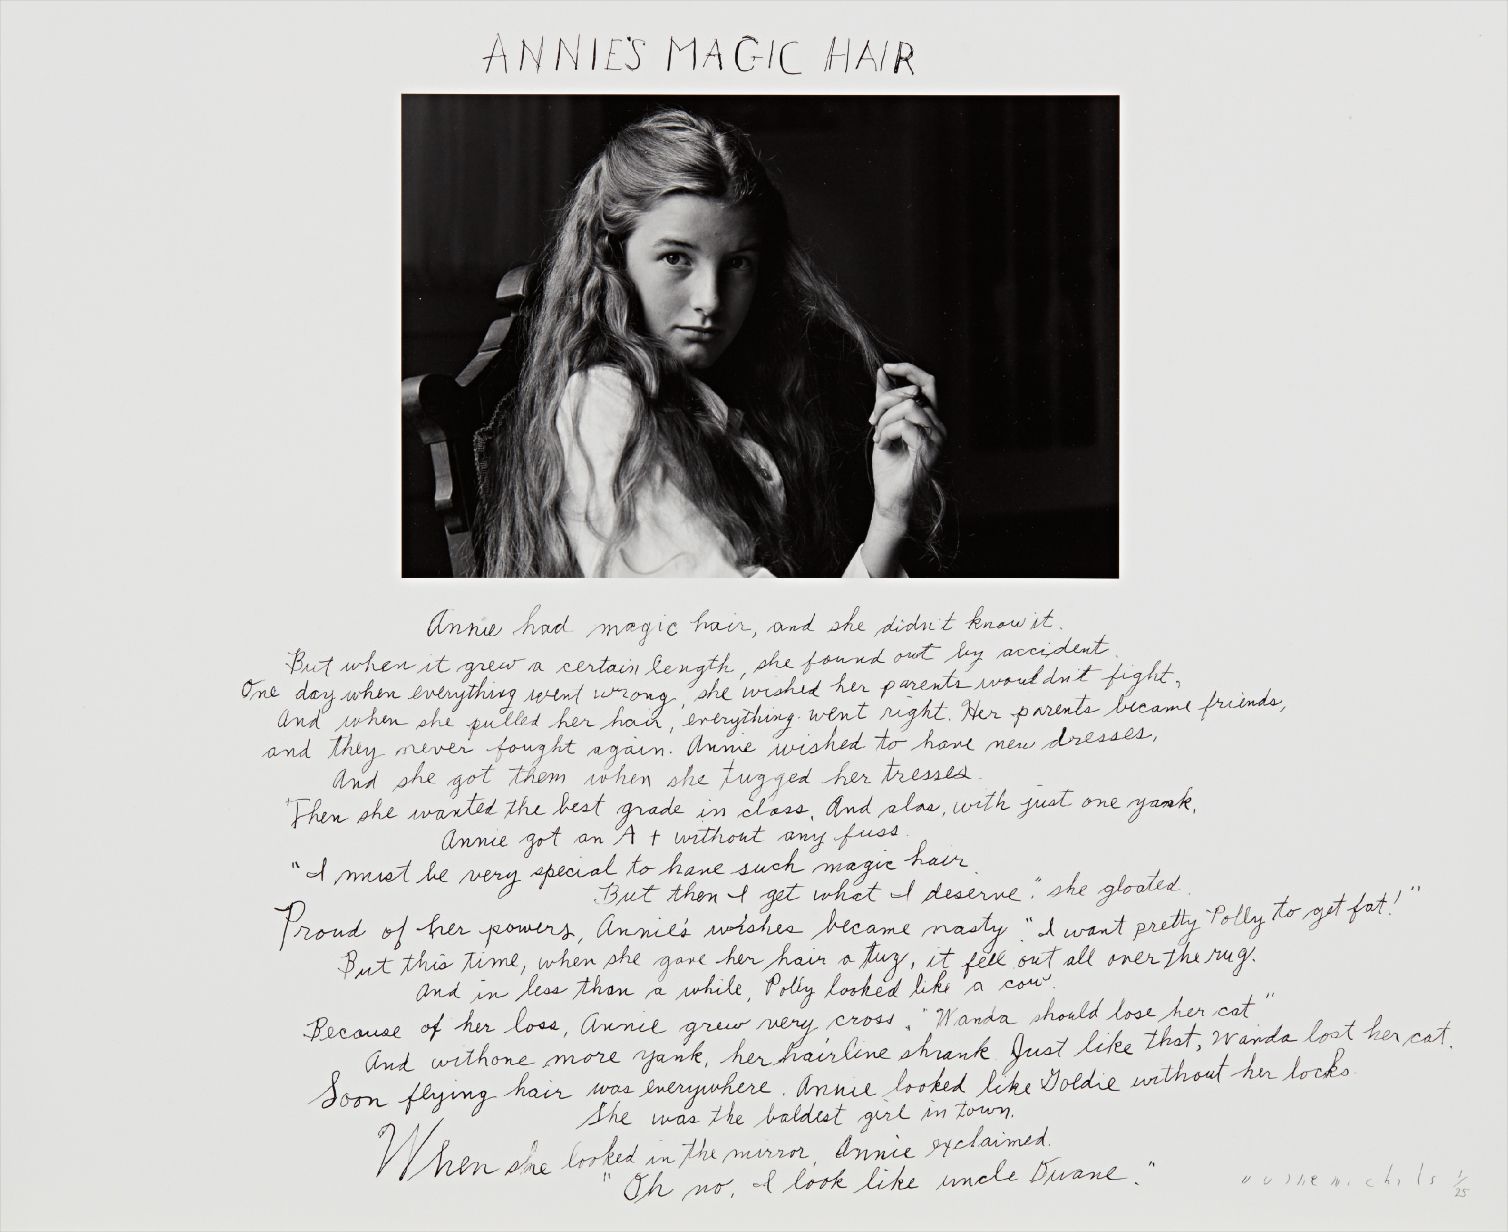 ANNIE'S MAGIC HAIR
Annie had magic hair, and she didn't know it.
But when it grew a certain length, she found out by accident.
One day when everything went wrong, she wished her parents wouldn't fight,
And when she pulled her hair, everything went right. Her parents became friends,
and they never fought again. Annie wished to have new dresses,
And she got them when she tugged her tresses.
Then she wanted the best grade in class, And alas, with just one yank,
Annie got an A + without any fuss.
"I must be very special to have such magic hair.
But then I get what I deserve." she gloated.
Proud of her powers, Annie's wishes became nasty. "I want pretty Polly to get fat!"
But this time, when she gave her hair a tug, it fell out all over the rug.
And in less than a while, Polly looked like a cow.
Because of her loss, Annie grew very cross. "Wanda should lose her cat"
And with one more yank, her hairline shrank. Just like that, Wanda lost her cat.
Soon flying hair was everywhere. Annie looked like Goldie without her locks.
She was the baldest girl in town.
When she looked in the mirror, Annie exclaimed.
"Oh no, I look like uncle Duane."
Duane Michals 1/25